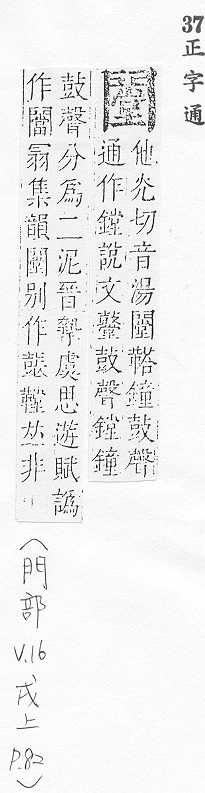 37正字通
闛
他光切音湯闛鞳鐘鼓聲
通作鏜說文鼞鼓聲鏜鐘
鼓聲分為二泥晉摯虞思遊賦譌
作翕集韻闛別作𠀤非
(門部 V.16 戌上 P.82)